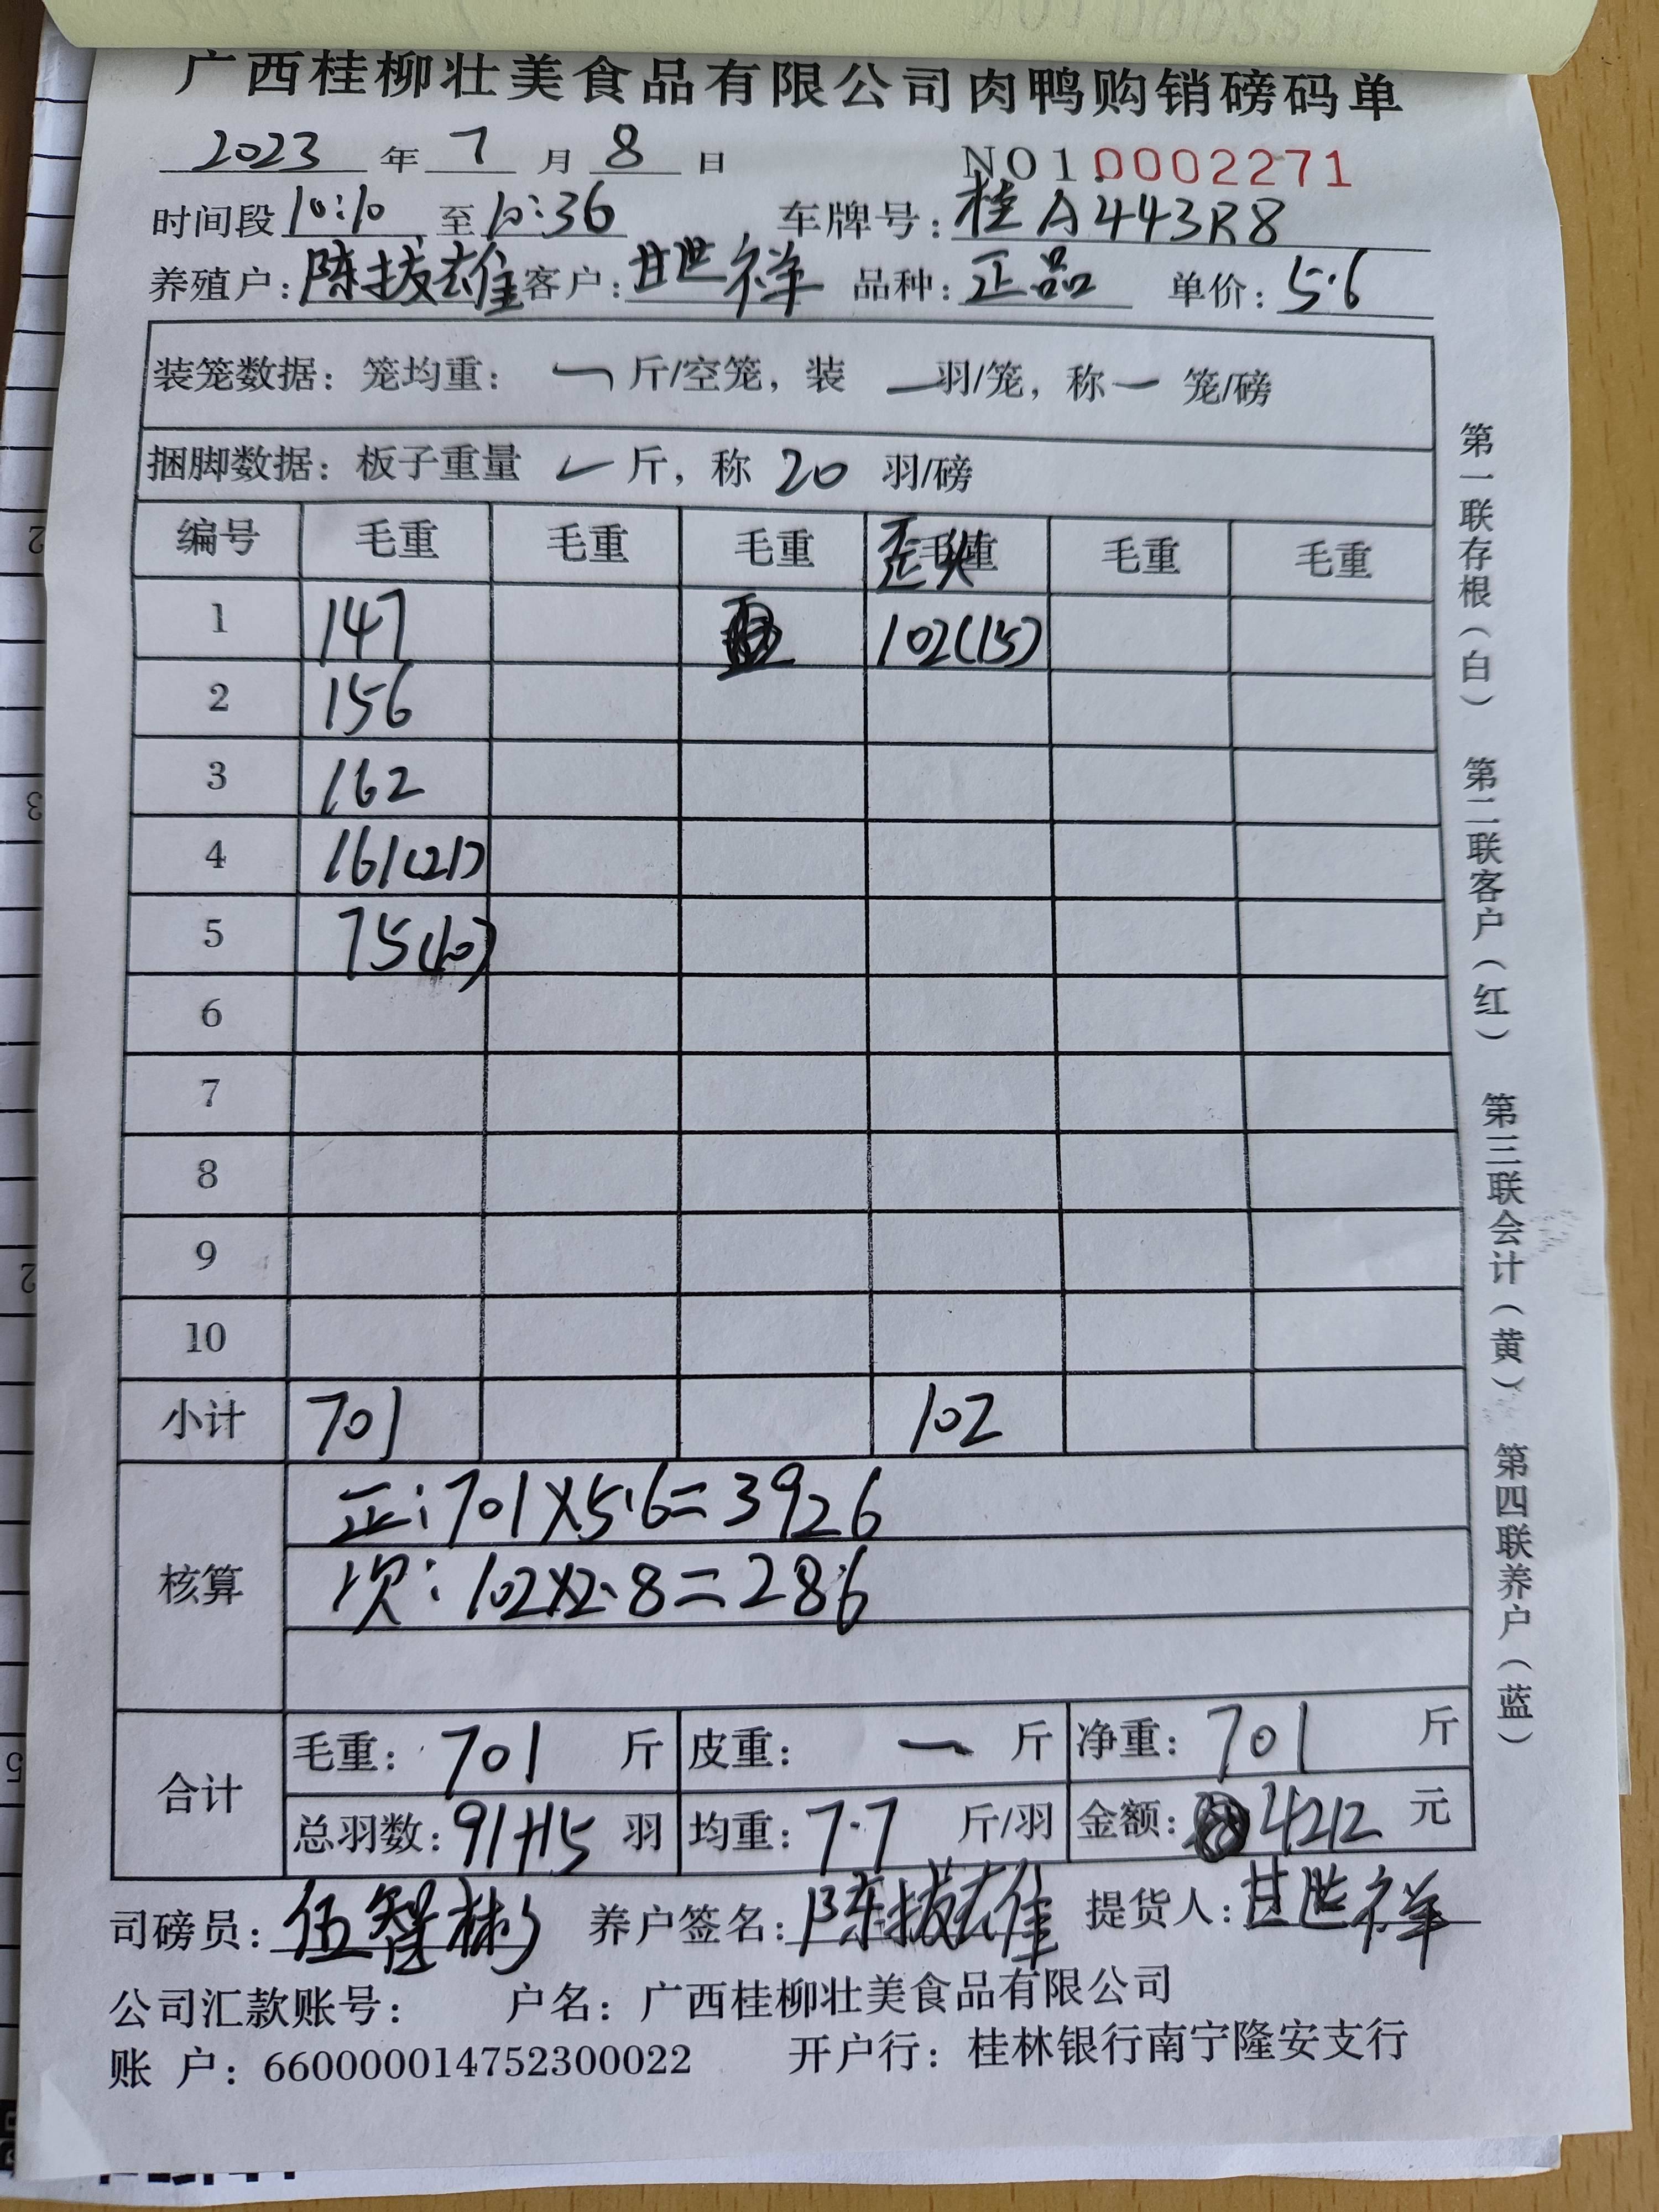 广西桂柳壮美食品有限公司肉鸭购销磅码单
2023 年 7 月 8 日 NO10002271
时间段 10:10 至 10:36 车牌号：桂A443R8
养殖户：陈拔雄 客户：甘世祥 品种：正品 单价：5.6
装笼数据：笼均重： 一 斤/空笼，装 一 羽/笼，称 一 笼/磅
捆脚数据：板子重量 斤，称 20 羽/磅
编号 毛重 毛重 毛重 歪头 毛重 毛重 毛重
1 147 102(15)
2 156
3 162
4 161(21)
5 75(10)
6
7
8
9
10
小计 701 102
核算
正：701×5.6=3926
次：102×2.8=286
合计
毛重：701 斤 皮重： 一 斤 净重：701 斤
总羽数：91+15 羽 均重：7.7 斤/羽 金额：4212 元
司磅员：伍智彬 养户签名：陈拔雄 提货人：甘世祥
公司汇款账号： 户名：广西桂柳壮美食品有限公司
账 户：660000014752300022 开户行：桂林银行南宁隆安支行
第一联存根（白） 第二联客户（红） 第三联会计（黄） 第四联养户（蓝）